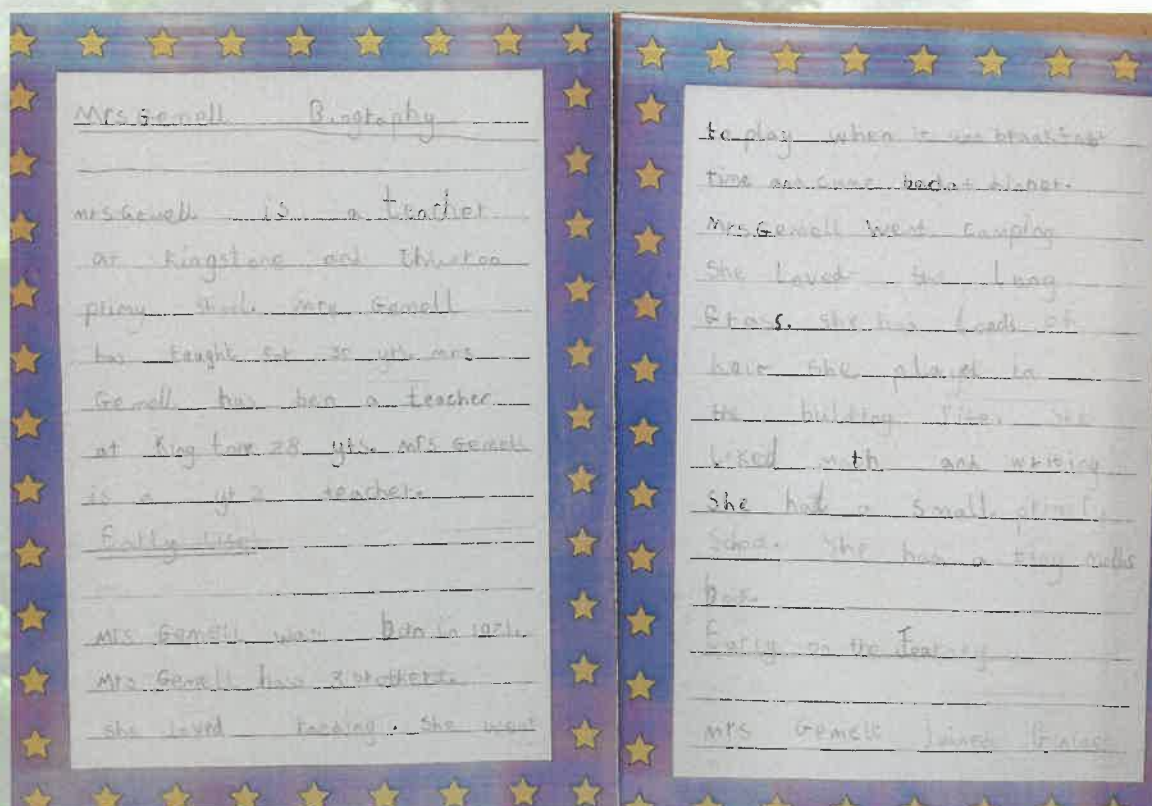 Mrs Gemell Biography
mrs Gemell is a teacher
at Kingstone and Thuroo
primy Mrs Gemell
has taught for 30 yrs. mrs
Gemell has ben a teacher
at King tone 28 yrs. Mrs Gemell
is a yr 2 teacher.
Early Life
Mrs Gemell was bon in
Mrs Gemell has 3 brothers.
she loved reading. She went
to play when it was breakfast
time and came at
Mrs Gemell went camping
She Loved the Long
Grass. She has Loads of
hair She played in
the building site. She
Liked math and writing
She had a small
She has a tiny
Early on the Jearney
mrs Gemell Joined